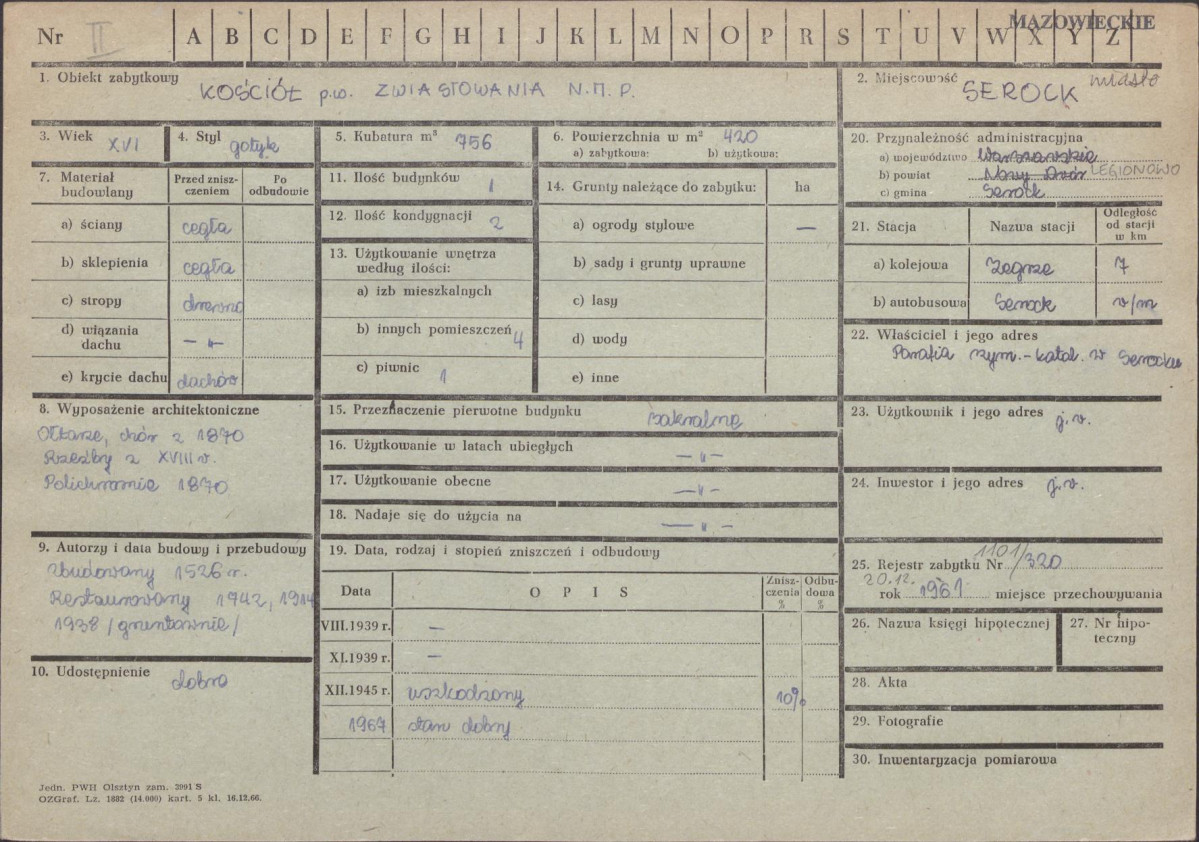 MAZOWIECKIE
Nr II A B C D E F G H I J K L M N O P R S T U V W X Y Z
1. Obiekt zabytkowy
KOŚCIÓŁ p.w. ZWIASTOWANIA N.M.P.
2. Miejscowość
SEROCK miasto
3. Wiek XVI
4. Styl gotyk
5. Kubatura m³ 756
6. Powierzchnia w m² 420
a) zabytkowa: b) użytkowa:
7. Materiał budowlany
Przed zniszczeniem
Po odbudowie
a) ściany cegła
b) sklepienia cegła
c) stropy drewno
d) wiązania dachu — „ —
e) krycie dachu dachów
8. Wyposażenie architektoniczne
Ołtarze, chór z 1870
Rzeźby z XVIII w.
Polichromie 1870
9. Autorzy i data budowy i przebudowy
zbudowany 1526 r.
Restaurowany 1942, 1914
1938 /gruntownie/
10. Udostępnienie dobre
11. Ilość budynków 1
12. Ilość kondygnacji 2
13. Użytkowanie wnętrza według ilości:
a) izb mieszkalnych
b) innych pomieszczeń 4
c) piwnic 1
14. Grunty należące do zabytku: ha
a) ogrody stylowe —
b) sady i grunty uprawne
c) lasy
d) wody
e) inne
15. Przeznaczenie pierwotne budynku sakralne
16. Użytkowanie w latach ubiegłych — „ —
17. Użytkowanie obecne — „ —
18. Nadaje się do użycia na — „ —
19. Data, rodzaj i stopień zniszczeń i odbudowy
Data O P I S Zniszczenia % Odbudowa %
VIII.1939 r. —
XI.1939 r. —
XII.1945 r. uszkodzony 10%
1967 stan dobry
20. Przynależność administracyjna
a) województwo Warszawskie
b) powiat Nowy Dwór LEGIONOWO
c) gmina Serock
21. Stacja Nazwa stacji Odległość od stacji w km
a) kolejowa Zegrze 7
b) autobusowa Serock w/m
22. Właściciel i jego adres
Parafia rzym.-katol. w Serocku
23. Użytkownik i jego adres j.w.
24. Inwestor i jego adres j.w.
25. Rejestr zabytku Nr 1101/320
20.12.
rok 1961 miejsce przechowywania
26. Nazwa księgi hipotecznej
27. Nr hipoteczny
28. Akta
29. Fotografie
30. Inwentaryzacja pomiarowa
Jedn. PWH Olsztyn zam. 3991 S
OZGraf. Lz. 1882 (14.000) kart. 5 kl. 16.12.66.